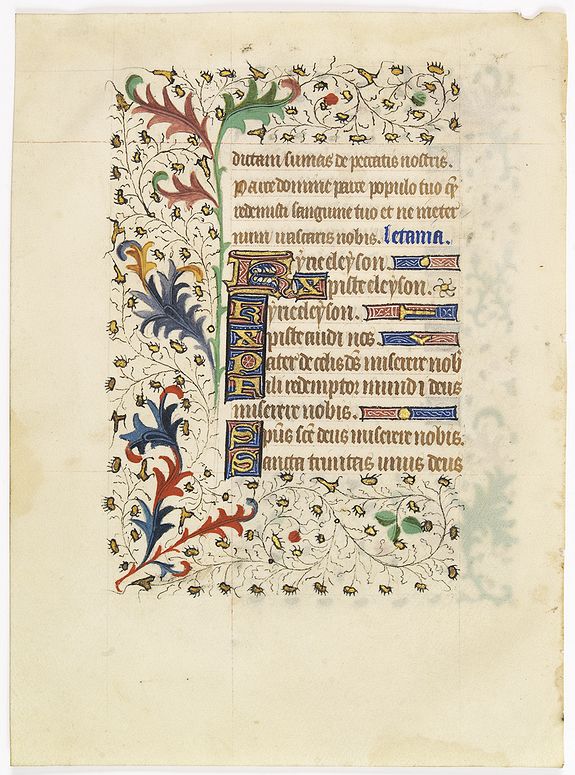 dictam sumas de peccatis nostris.
Parce domine parce populo tuo q̃
redemisti sanguine tuo et ne in eter
num irascaris nobis. letania.
Kyrieleyson.
Xp̃isteeleyson.
Kyrieleyson.
Xp̃iste audi nos.
Pater de celis d̃s miserere nob̃
Fili redemptor mundi deus
miserere nobis.
Sp̃us sc̃e deus miserere nobis.
Sancta trinitas unus deus